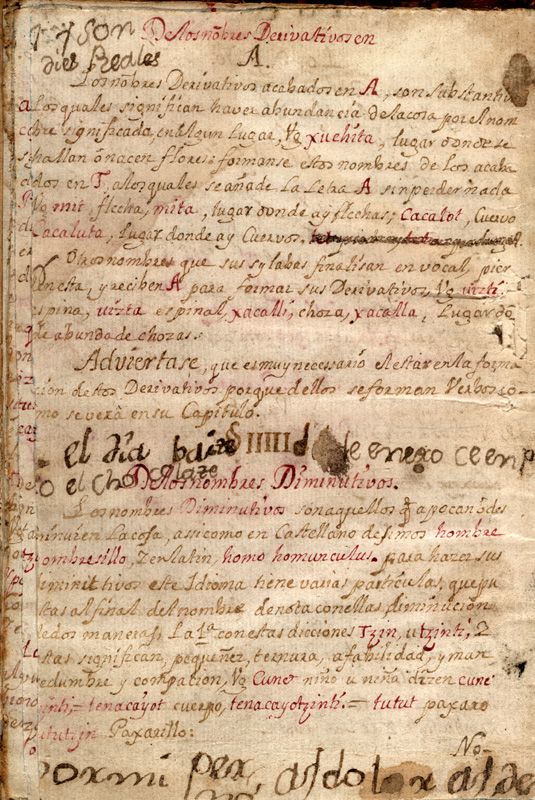 y son
dies Reales
De los nõbres Derivativos en
A.
Los nõbres Derivativos acabados en A, son Substantiv
Los quales significan haver abundancia de la cosa por el nom
bre significada, en algun Lugar, Vg xuchita, lugar donde se
hallan ô nacen flores: formanse estos nombres de los acaba
dos en T, a los quales se añade La Letra A sin perder nada
Vg mit, flecha, mita, lugar donde ay flechas, Cacalot, Cuervo
Cacaluta, Lugar donde ay Cuervos.
Otros nombres que sus sylabas finalisan en vocal, pier
den esta, y reciben A para formar sus Derivativos, Vg uizti
espina, uizta espinal, xacalli, choza, xacalla, Lugar dõ
que abunda de chozas.
Adviertase, que es muy necessario el estar en la forma
cion destos Derivativos porque dellos se forman Verbos co
mo se verâ en su Capitulo.
el día baize § IIIII d de enero
o el chocolaze
De los nombres Diminutivos.
Los nombres Diminutivos son aquellos q̃ apocan ô des
minuien La cosa, assi como en Castellano desimos hombre
hombresillo, Zen Latin, homo homunculus. para hazer sus
diminitivos este Idioma tiene varias particulas, que pu
estas al final del nombre denota con ellas diminucion
de dos maneras, La 1a con estas dicciones Tzin, utzinti, 2
estas significan, pequeñez, ternura, afabilidad, y man
sedumbre y compacion, Vg Cune niño u niña dizen cune
tzinti, = tenacayot cuerpo, tenacayotzinti. = tutut paxaro
tututzin Paxarillo:
No-
por mi